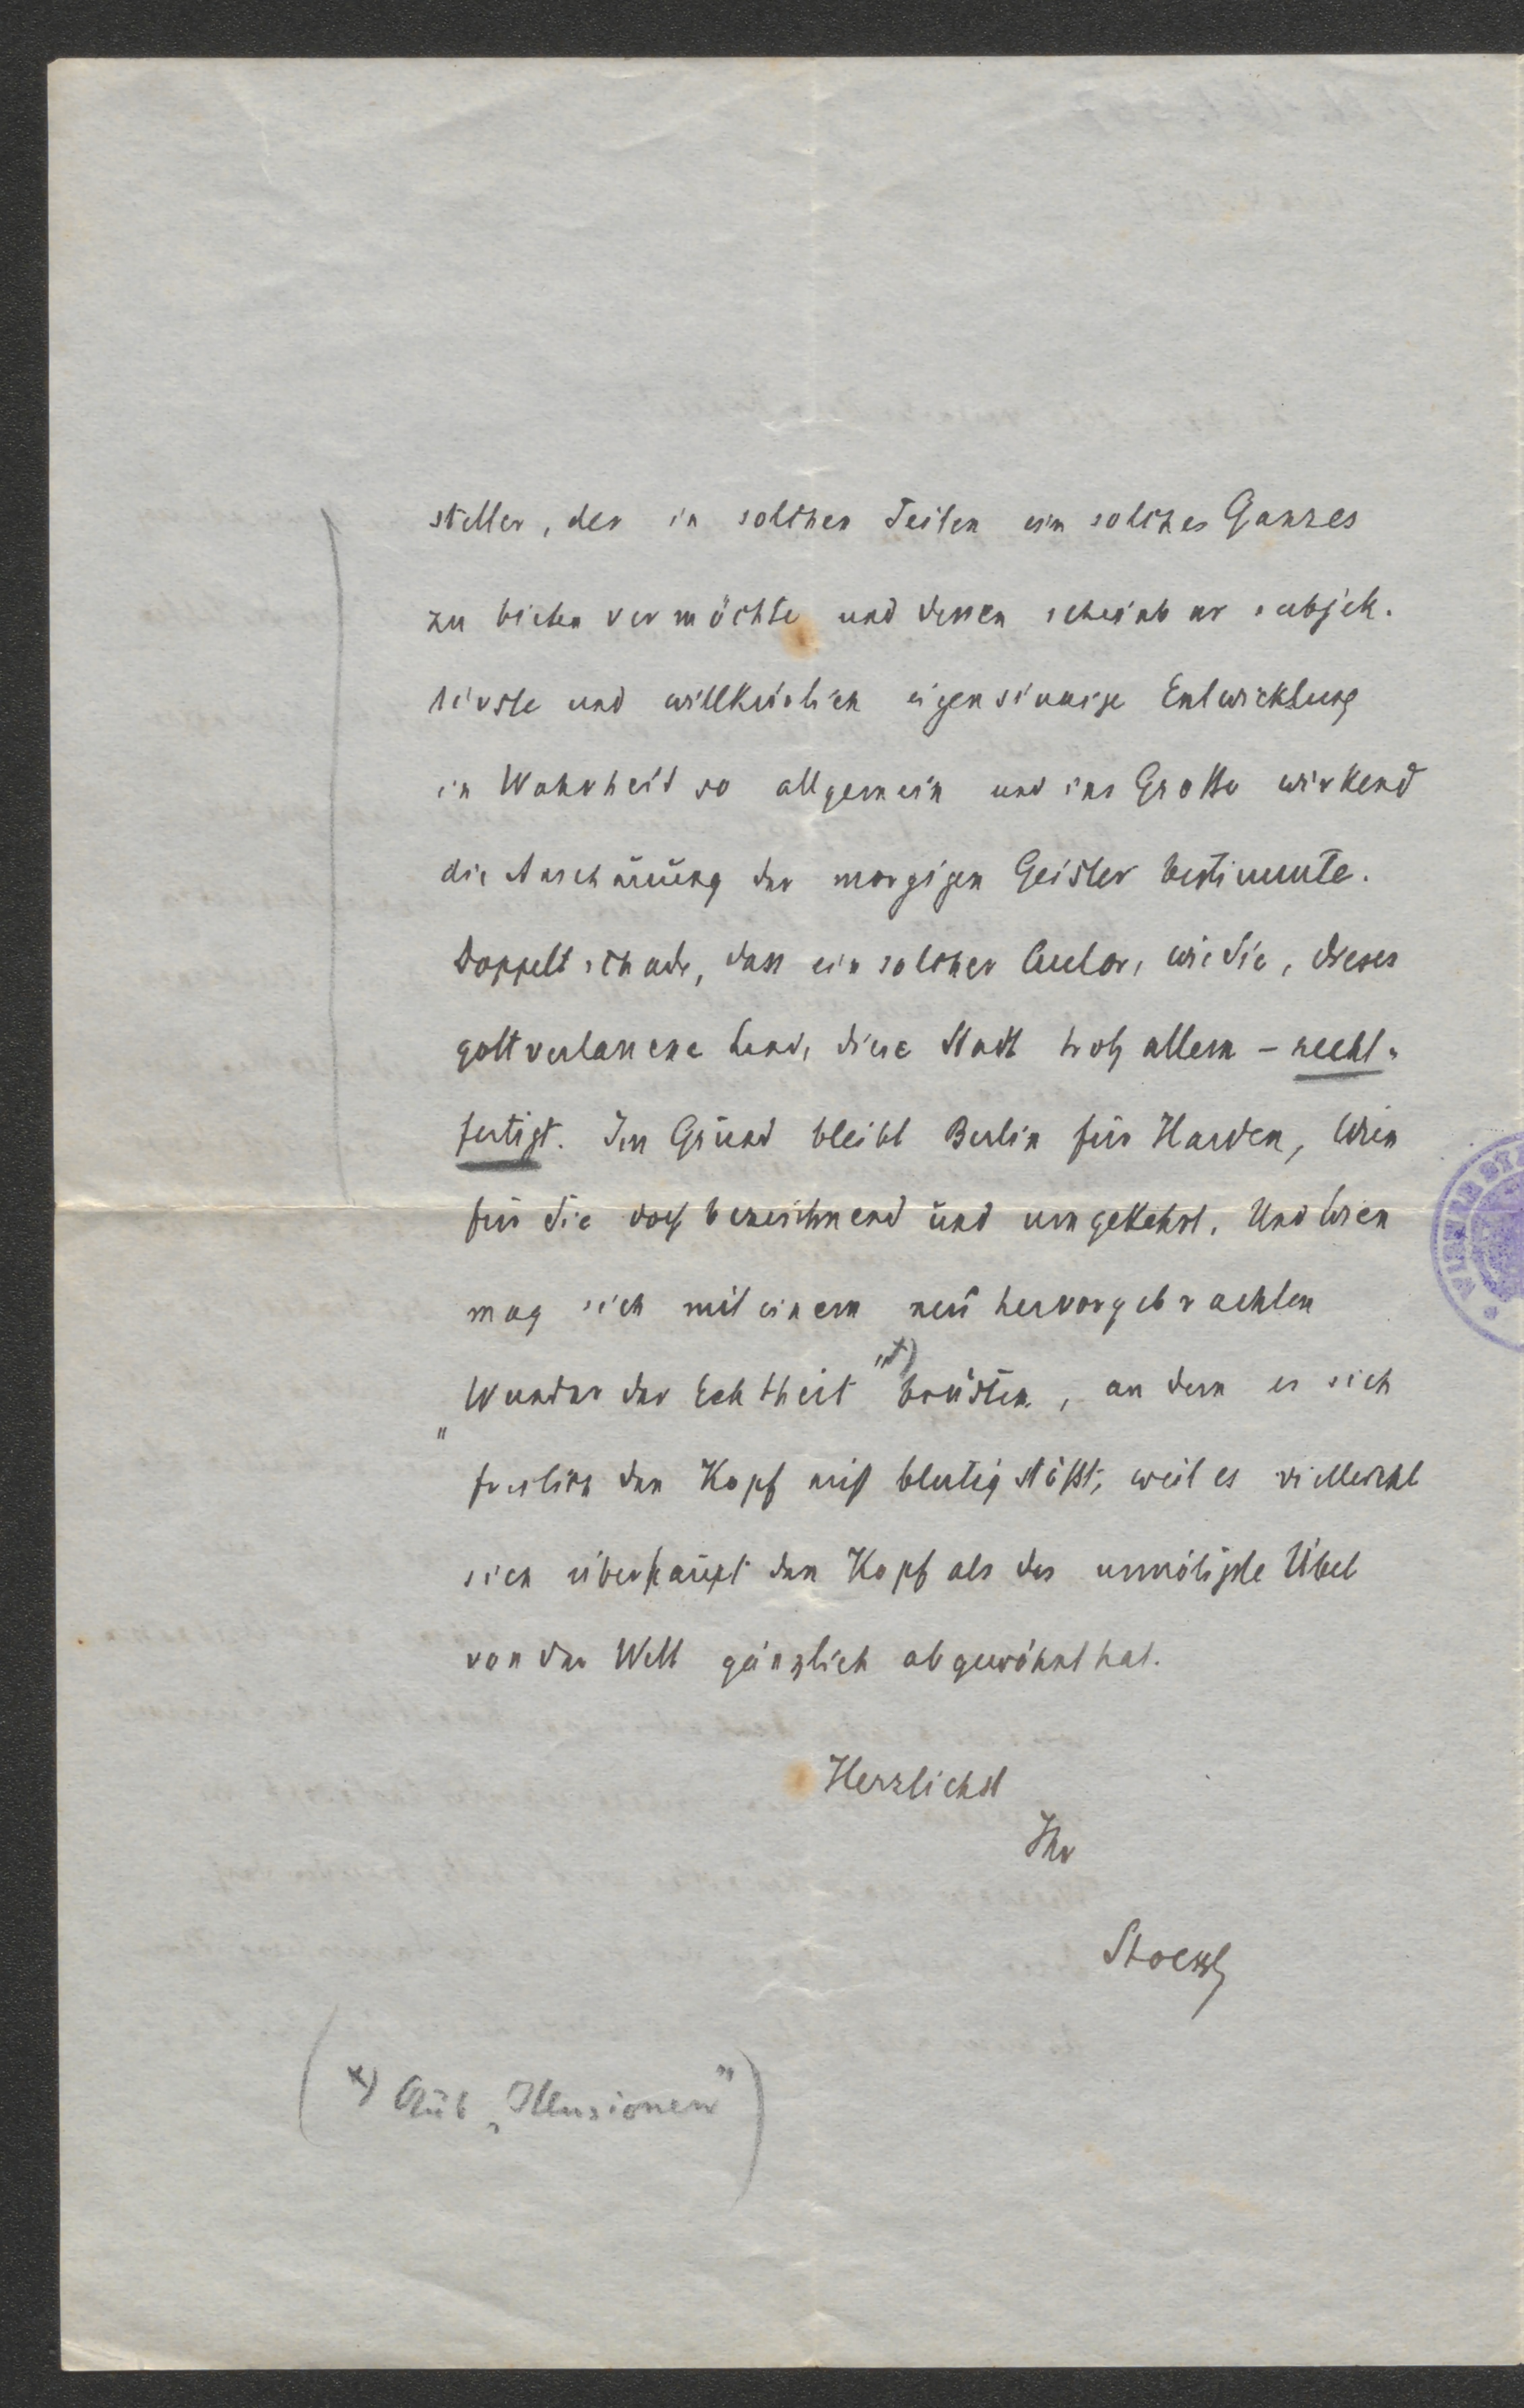 steller, der in solchen Teilen ein solches Ganzes
zu bieten vermöchte und dessen scheinbar subjek-
tivste und willkürlich eigensinnige Entwicklung
in Wahrheit so allgemein und ins Große wirkend
die Anschauung der morgigen Geister bestimmte.
Doppelt schade, dass ein solcher Autor, wie Sie, dieses
gottverlassene Land, diese Stadt trotz allem – recht-
fertigt. Im Grund bleibt Berlin für Harden, Wien
für Sie doch bezeichnend und umgekehrt. Und Wien
mag sich mit einem neu hervorgebrachten
„Wunder der Echtheit" x) brüsten, an dem es sich
freilich den Kopf nicht blutig stößt, weil es vielleicht
sich überhaupt den Kopf als das unnötigste Übel
von der Welt gänzlich abgewöhnt hat.
Herzlichst
Ihr
Stoessl
(x) Aus „Illusionen")